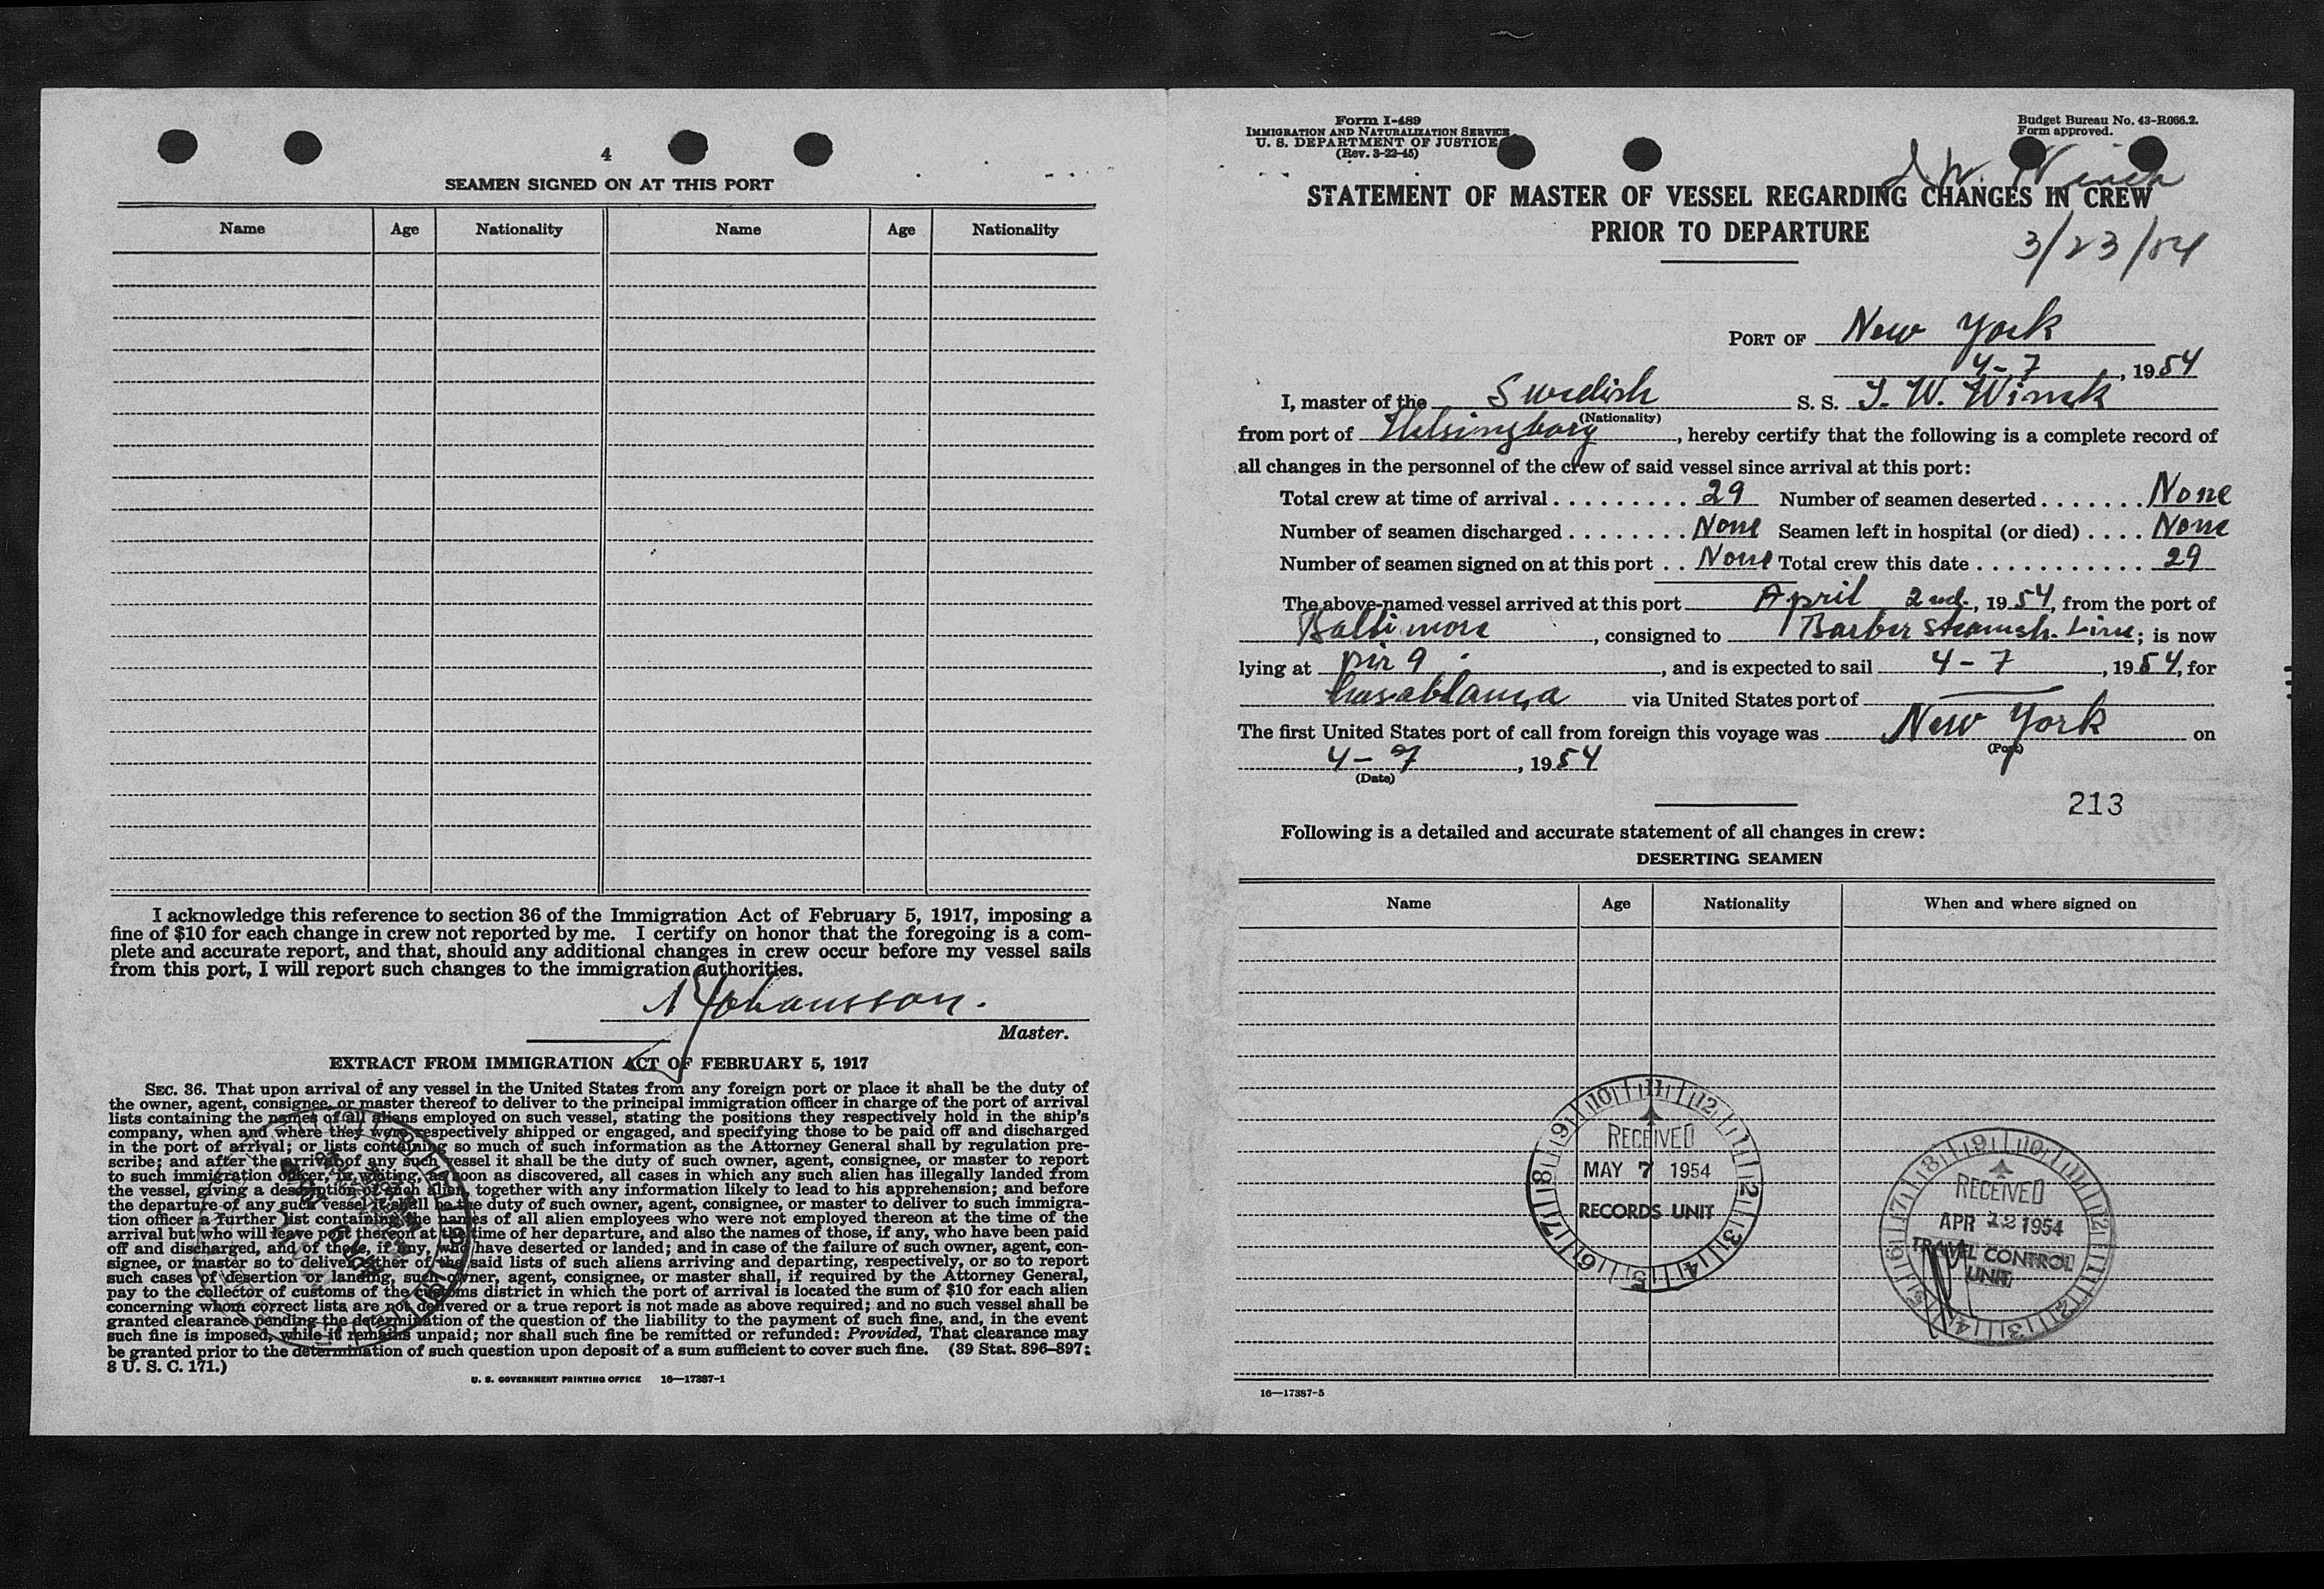 4
SEAMEN SIGNED ON AT THIS PORT
Name Age Nationality Name Age Nationality
I acknowledge this reference to section 36 of the Immigration Act of February 5, 1917, imposing a
fine of $10 for each change in crew not reported by me. I certify on honor that the foregoing is a com-
plete and accurate report, and that, should any additional changes in crew occur before my vessel sails
from this port, I will report such changes to the immigration authorities.
Johansson.
Master.
EXTRACT FROM IMMIGRATION ACT OF FEBRUARY 5, 1917
SEC. 36. That upon arrival of any vessel in the United States from any foreign port or place it shall be the duty of
the owner, agent, consignee, or master thereof to deliver to the principal immigration officer in charge of the port of arrival
lists containing the names of all aliens employed on such vessel, stating the positions they respectively hold in the ship's
company, when and where they were respectively shipped or engaged, and specifying those to be paid off and discharged
in the port of arrival; or lists containing so much of such information as the Attorney General shall by regulation pre-
scribe; and after the arrival of any such vessel it shall be the duty of such owner, agent, consignee, or master to report
to such immigration officer, in writing, as soon as discovered, all cases in which any such alien has illegally landed from
the vessel, giving a description of such alien, together with any information likely to lead to his apprehension; and before
the departure of any such vessel it shall be the duty of such owner, agent, consignee, or master to deliver to such immigra-
tion officer a further list containing the names of all alien employees who were not employed thereon at the time of the
arrival but who will leave port thereon at the time of her departure, and also the names of those, if any, who have been paid
off and discharged, and of those, if any, who have deserted or landed; and in case of the failure of such owner, agent, con-
signee, or master so to deliver either of the said lists of such aliens arriving and departing, respectively, or so to report
such cases of desertion or landing, such owner, agent, consignee, or master shall, if required by the Attorney General,
pay to the collector of customs of the customs district in which the port of arrival is located the sum of $10 for each alien
concerning whom correct lists are not delivered or a true report is not made as above required; and no such vessel shall be
granted clearance pending the determination of the question of the liability to the payment of such fine, and, in the event
such fine is imposed, while it remains unpaid; nor shall such fine be remitted or refunded: Provided, That clearance may
be granted prior to the determination of such question upon deposit of a sum sufficient to cover such fine. (39 Stat. 896–897;
8 U. S. C. 171.)
U. S. GOVERNMENT PRINTING OFFICE 16—17387-1
Form I-489
IMMIGRATION AND NATURALIZATION SERVICE
U. S. DEPARTMENT OF JUSTICE
(Rev. 3-22-45)
Budget Bureau No. 43-R066.2.
Form approved.
STATEMENT OF MASTER OF VESSEL REGARDING CHANGES IN CREW
PRIOR TO DEPARTURE
3/23/54
PORT OF New York
4-7, 1954
I, master of the Swedish S. S. J. W. Winck
(Nationality)
from port of Helsingborg, hereby certify that the following is a complete record of
all changes in the personnel of the crew of said vessel since arrival at this port:
Total crew at time of arrival . . . . . . . . . 29 Number of seamen deserted . . . . . . . None
Number of seamen discharged . . . . . . . . None Seamen left in hospital (or died) . . . . None
Number of seamen signed on at this port . . None Total crew this date . . . . . . . . . . . . 29
The above-named vessel arrived at this port April 2nd., 1954, from the port of
Baltimore, consigned to Barber Steamsh. Line; is now
lying at pir 9, and is expected to sail 4-7, 1954, for
Casablanca via United States port of —
The first United States port of call from foreign this voyage was New York on
(Port)
4-7, 1954
(Date)
213
Following is a detailed and accurate statement of all changes in crew:
DESERTING SEAMEN
Name Age Nationality When and where signed on
RECEIVED
MAY 7 1954
RECORDS UNIT
RECEIVED
APR 12 1954
TRAVEL CONTROL
UNIT
16—17387-5